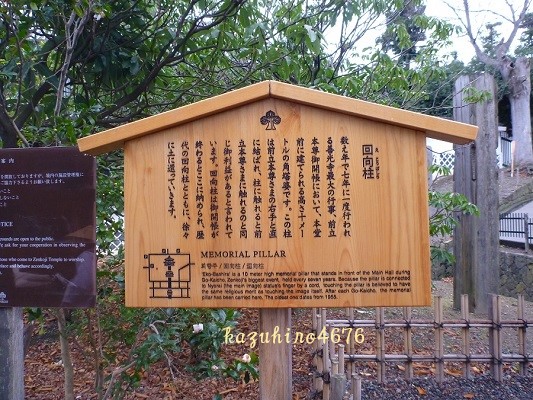 回向柱
数え年で七年に一度行われ
る善光寺最大の行事、前立
本尊御開帳において、本堂
前に建てられる高さ十メー
トルの角塔婆です。この柱
は前立本尊さまの右手と直
に結ばれ、柱に触れると前
立本尊さまに触れるのと同
じ御利益があると言われて
います。回向柱は御開帳が
終わるとここに納められ、歴
代の回向柱とともに、徐々
に土に還っていきます。
MEMORIAL PILLAR
回向柱
"Eko-Bashira" is a 10 meter high memorial pillar that stands in front of the Main Hall during
Go-Kaicho, Zenkoji's biggest event, held every seven years. Because the pillar is connected
to Nyorai (the main image) statue's finger by a cord, touching the pillar is believed to have
the same religious merit as touching the image itself. After each Go-Kaicho, the memorial
pillar has been carried here. The oldest one dates from 1955.
案内
NOTICE
grounds are open to the public.
ask for your cooperation in observing the
who come to Zenkoji Temple to worship,
and behave accordingly.
kazuhiro4676